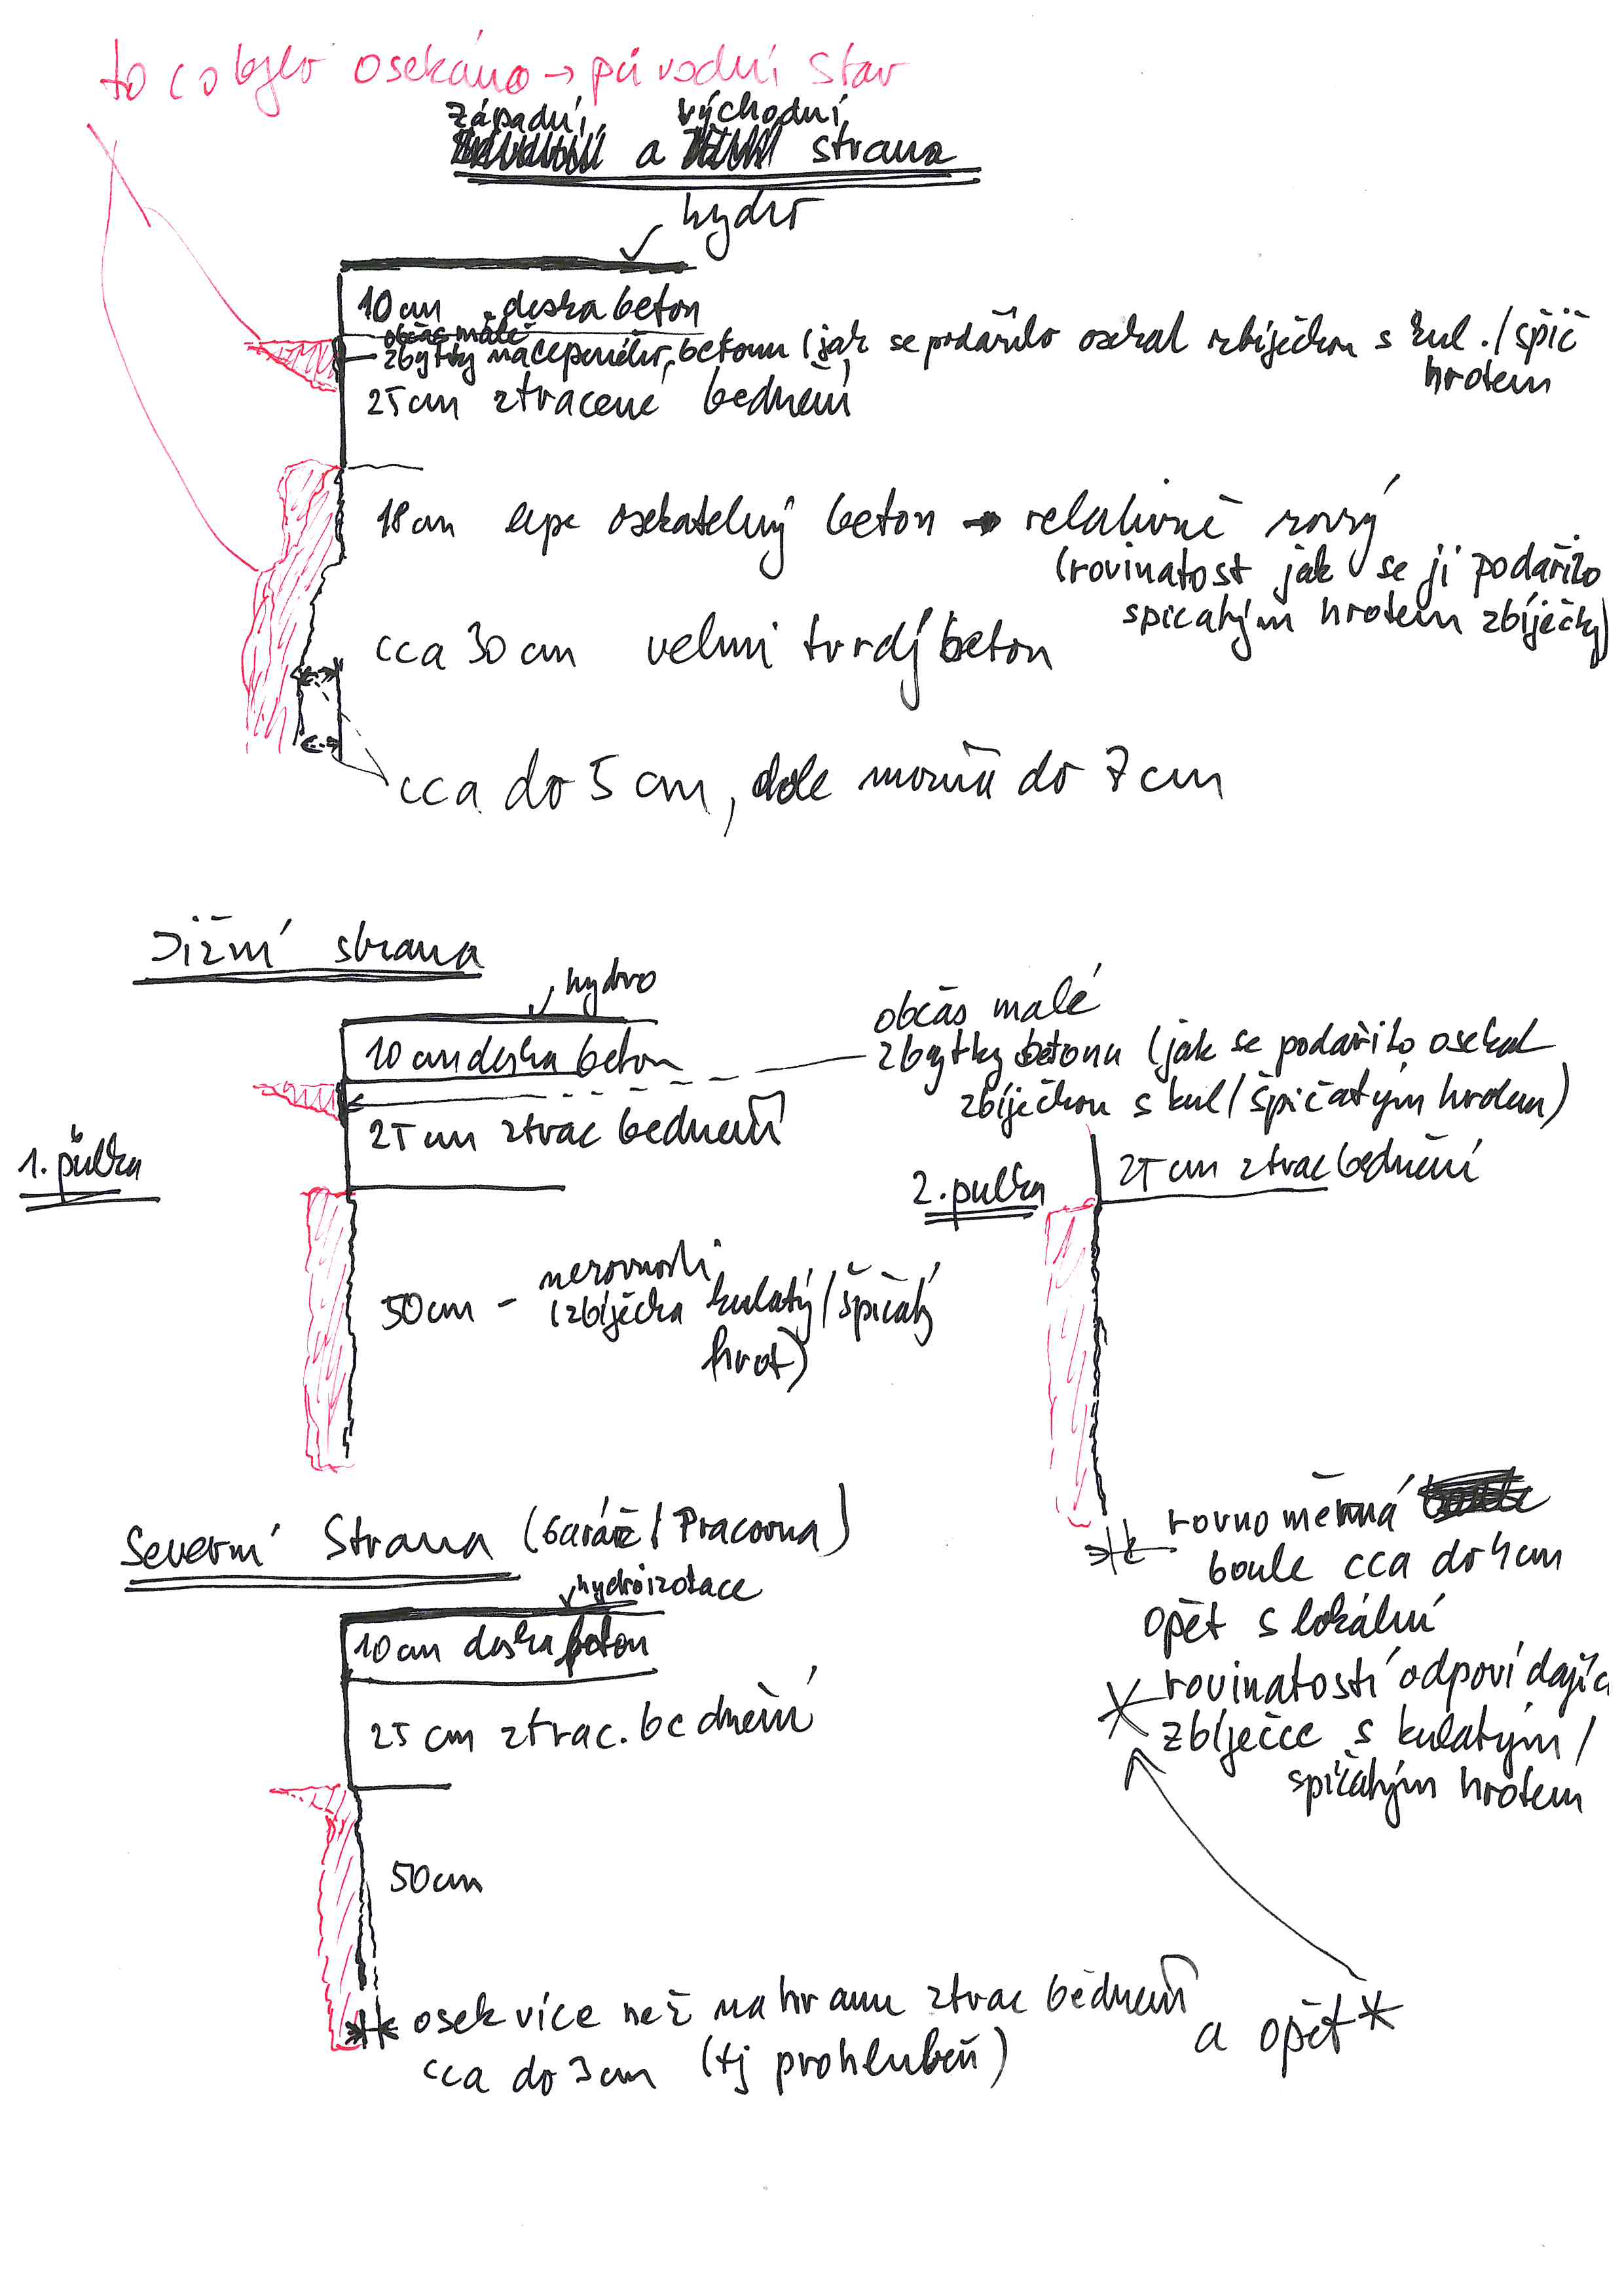 to co bylo osekáno → původní stav
západní východní
a strana
hydro
10 cm deska beton
občas malé
zbytky nalepeného betonu (jak se podařilo osekat zbíječkou s kul./špič
hrotem
25 cm ztracené bednění
18 cm lépe osekatelný beton → relativně rovný
(rovinatost jak se ji podařilo
spicatým hrotem zbíječky)
cca 30 cm velmi tvrdý beton
cca do 5 cm, dole možná do 7 cm
Jižní strana
hydro
10 cm deska beton
občas malé
zbytky betonu (jak se podařilo osekat
zbíječkou s kul/špičatým hrotem)
25 cm ztrac bednění
1. půlka
2. pulka
25 cm ztrac bednění
50 cm - nerovnosti
(zbíječka kulatý/špičatý
hrot)
rovnoměrná
boule cca do 4 cm
opět s lokální
* rovinatostí odpovídajíc
zbíječce s kulatým/
spičatým hrotem
Severní Strana (Garáž/Pracovna)
hydroizolace
10 cm deska beton
25 cm ztrac. bednění
50 cm
osek více než na hranu ztrac bednění
cca do 3 cm (tj prohlubeň)
a opět *